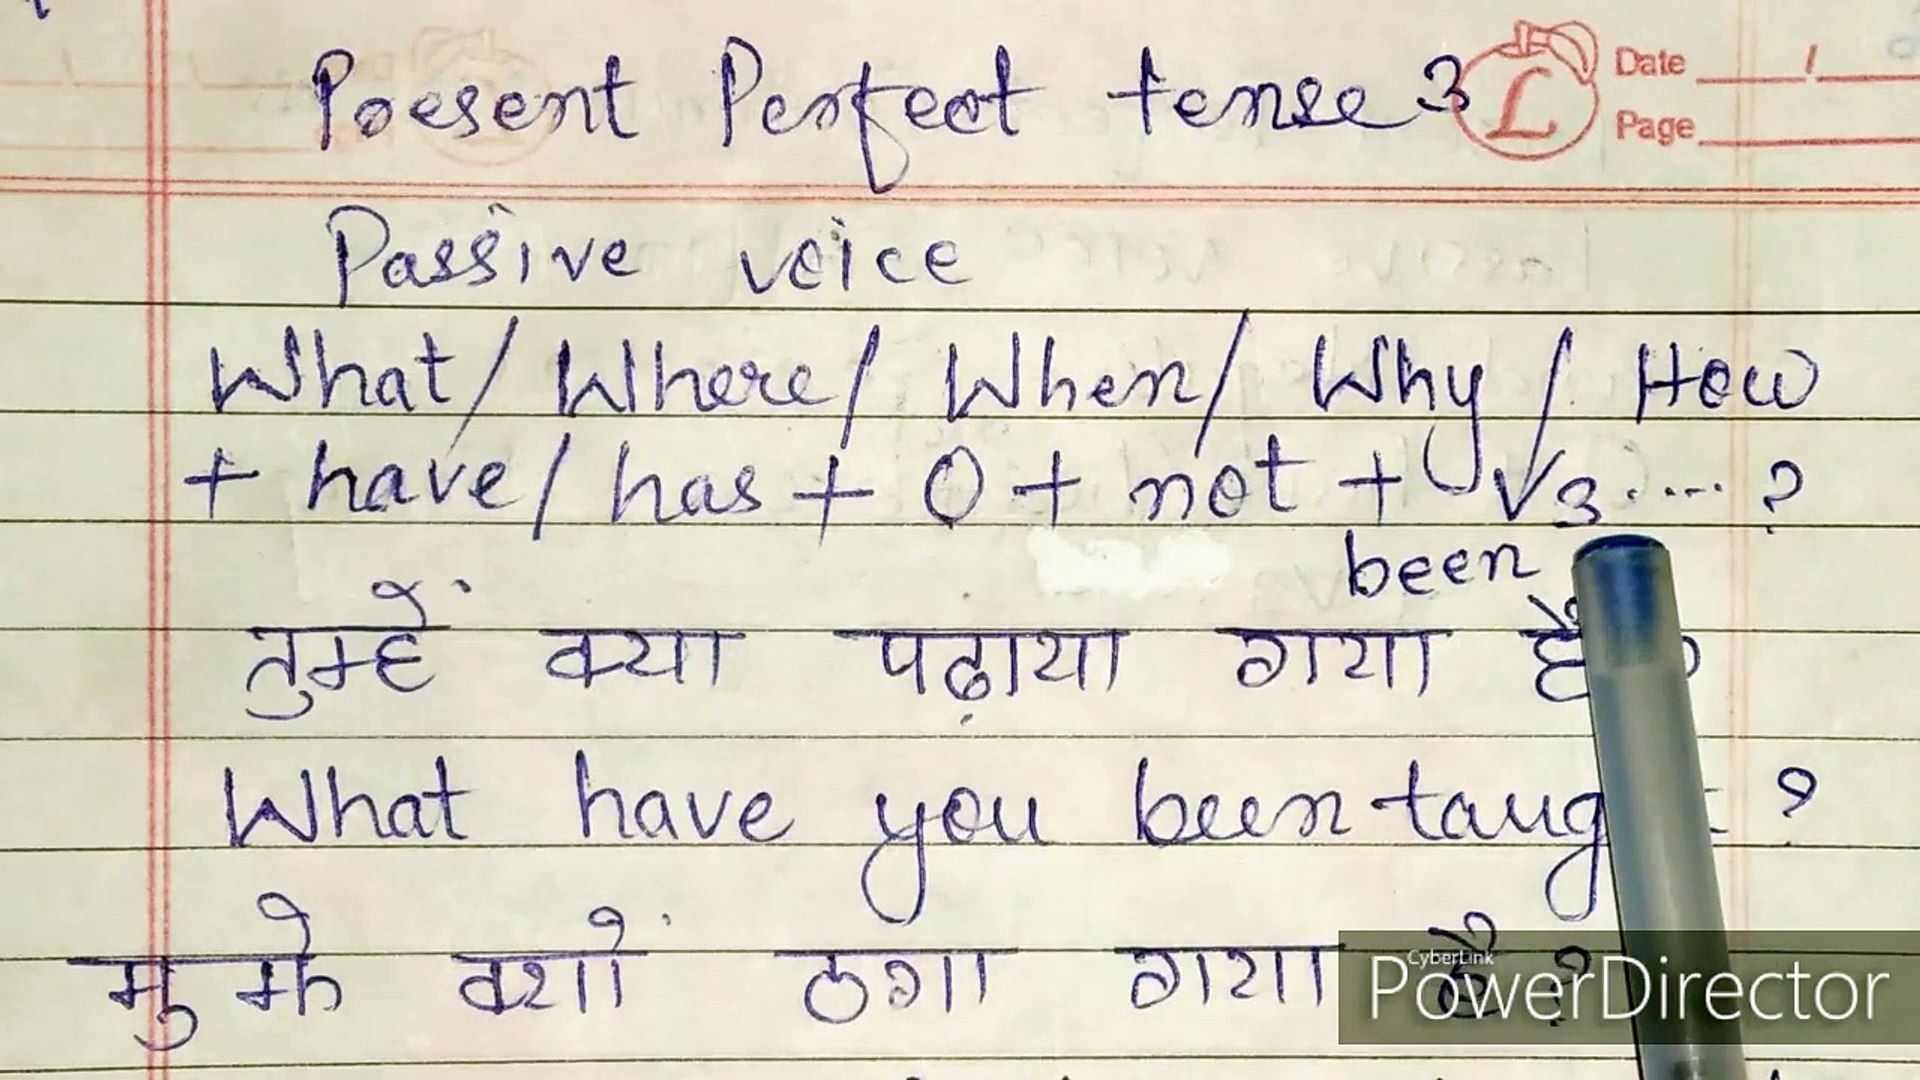 Present Perfect tense 3
Date / 
Page
Passive voice
What/ Where/ When/ Why / How
+ have/ has + O + not + V3 .... ?
been
तुम्हें क्या पढ़ाया गया है
What have you been taug ?
मुझे क्यों ठगा गया है ?
CyberLink
PowerDirector